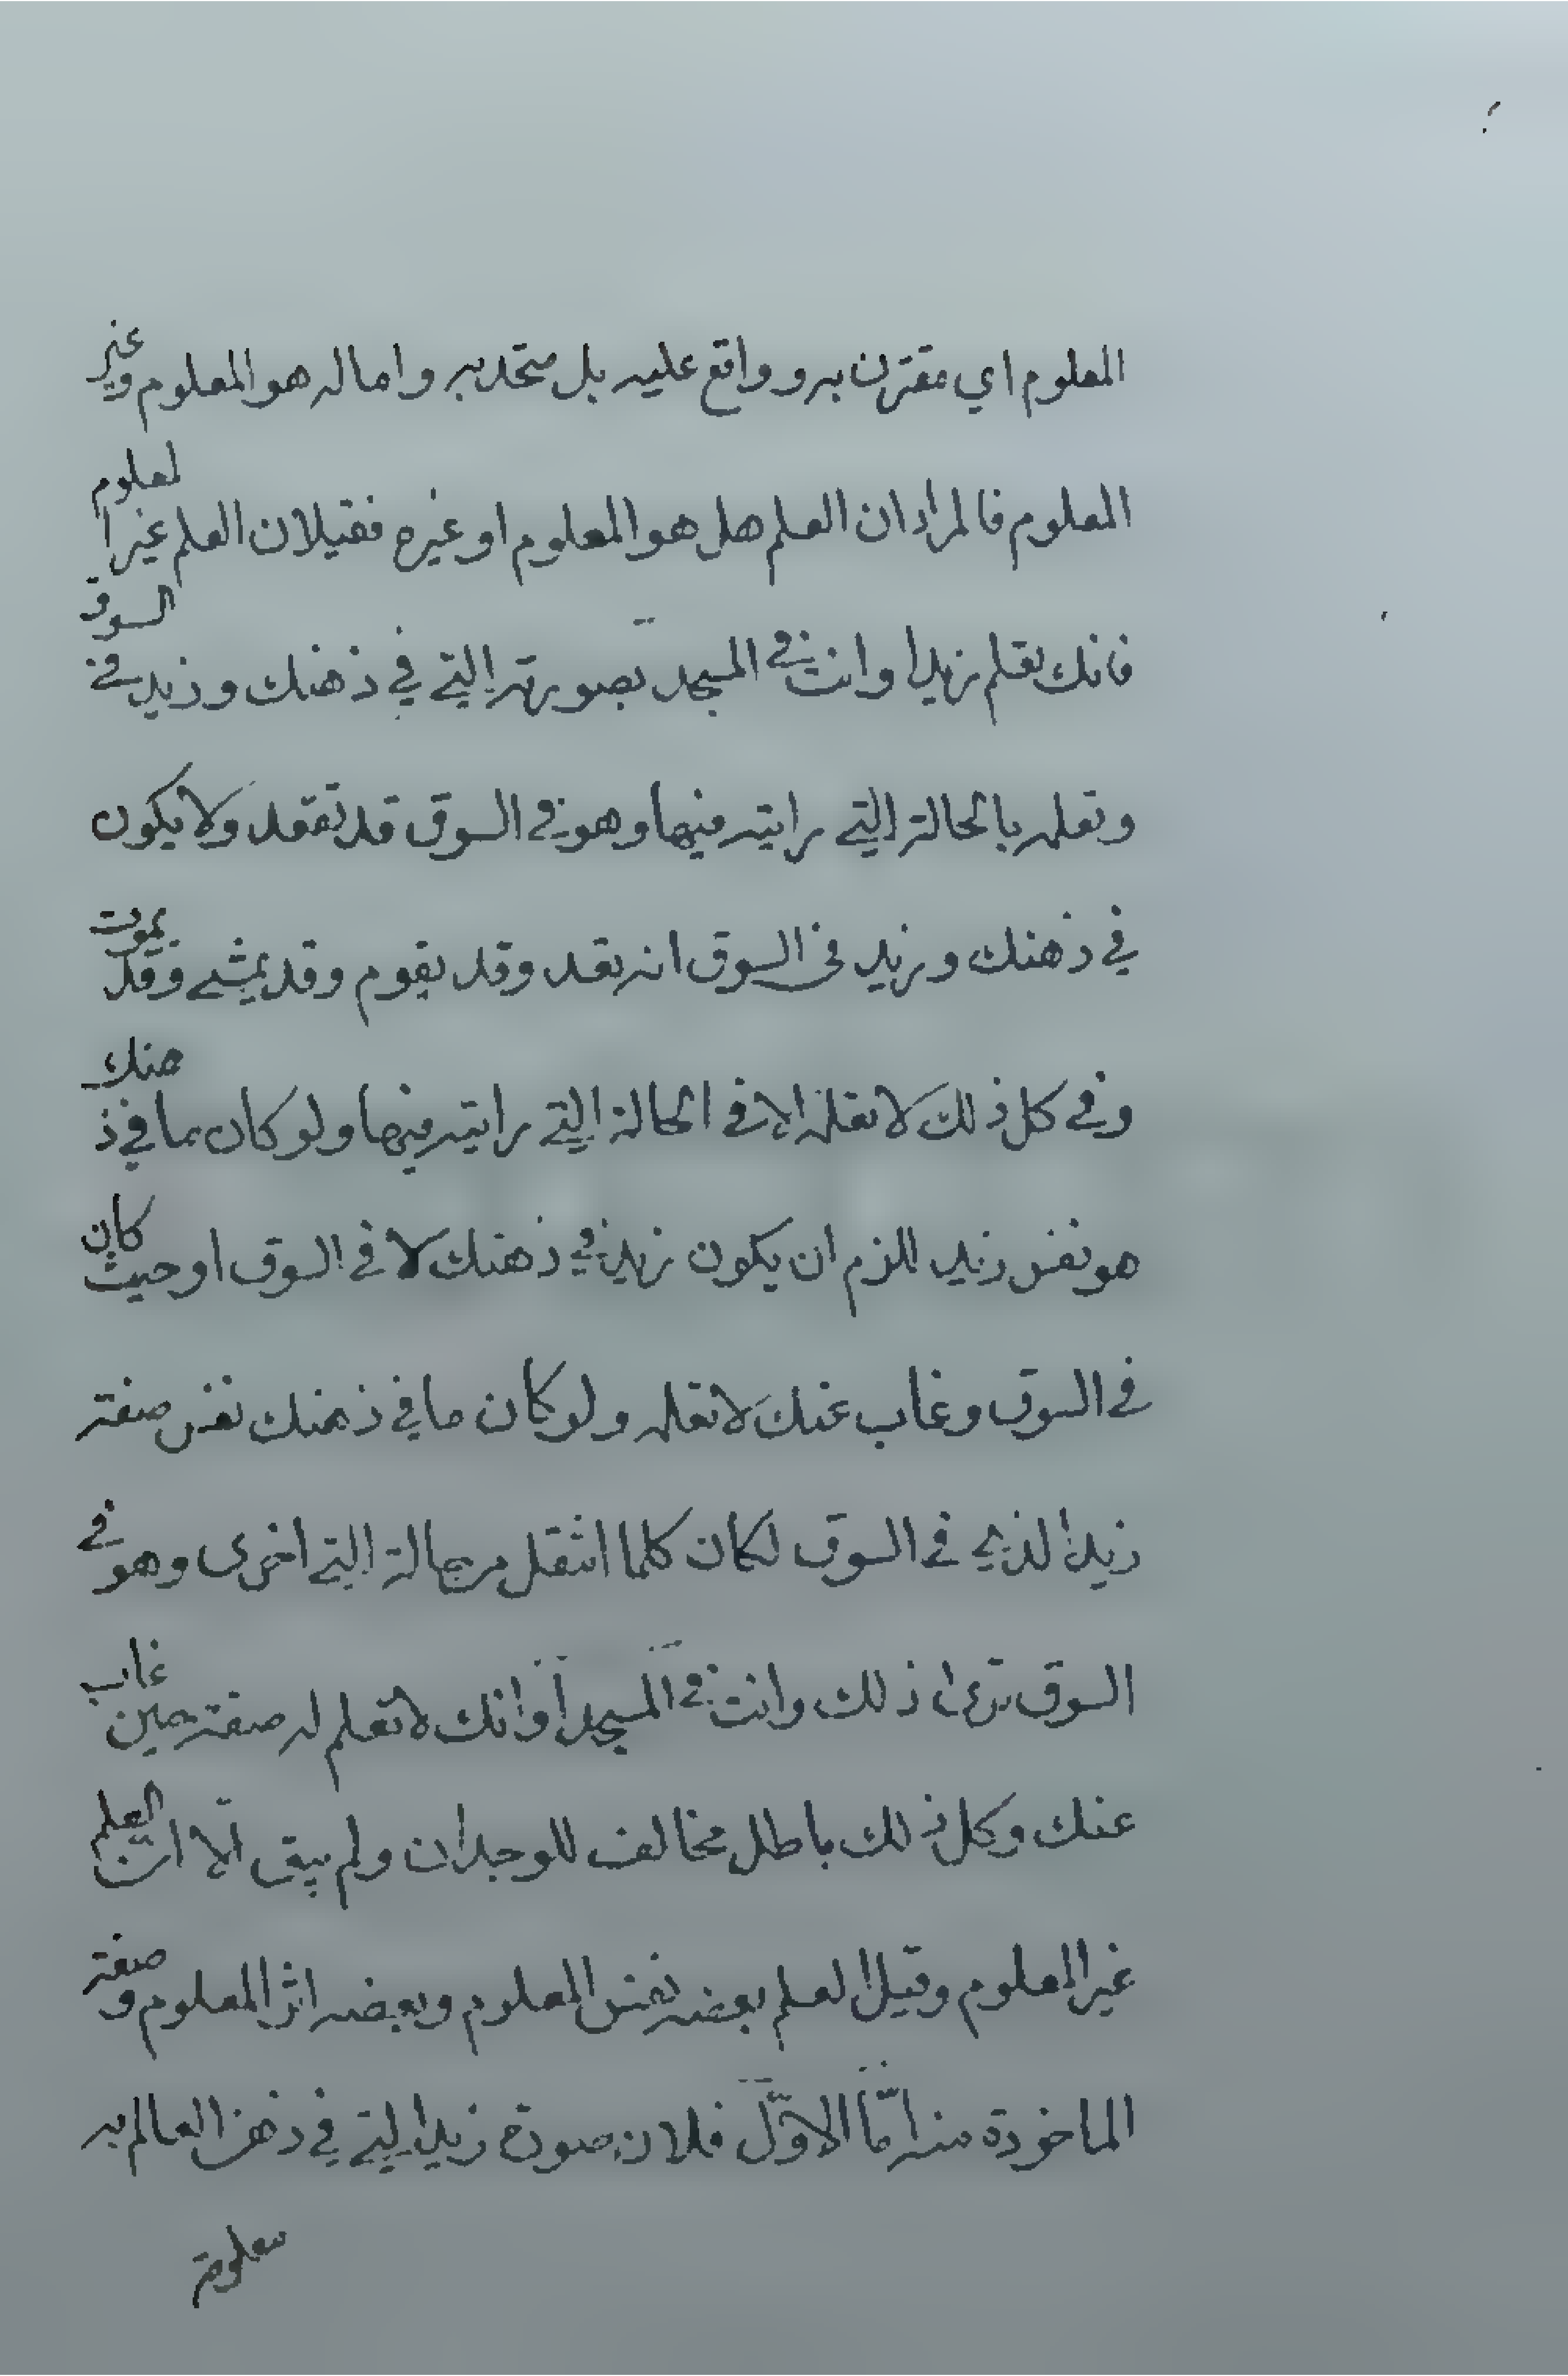 المعلوم اي مقترن به وواقع عليه بل متحد به واماله هو المعلوم وغير
المعلوم فالمراد ان العلم هل هو المعلوم او غيره فقيل ان العلم غير المعلوم
فانك تعلم زيدا وانت في المسجد بصورته التي في ذهنك وزيد في السوق
وتعلمه بالحالة التي رايته فيها وهو في السوق قد تفقد ولا يكون
في ذهنك وزيد في السوق انه يقعد وقد يقوم وقد يمشي وقد يموت
وفي كل ذلك لا تعلمه الا في الحالة التي رايته فيها ولو كان ما في ذهنك
هو نفس زيد للزم ان يكون زيد في ذهنك لا في السوق او حيث كان
في السوق وغاب عنك لا تعلمه ولو كان ما في ذهنك نفس صفة
زيد الذي في السوق لكان كلما انتقل من حالة الى اخرى وهو في
السوق ترى ذلك وانت في المسجد او انك لا تعلم له صفة حين غاب
عنك وكل ذلك باطل مخالف للوجدان ولم يبق الا ان العلم
غير المعلوم وقيل العلم بعضه نفس المعلوم وبعضه اثر المعلوم وصفته
الماخوذة منه امّا الاوّل فلان صورة زيد التي في ذهن العالم به
معلومة